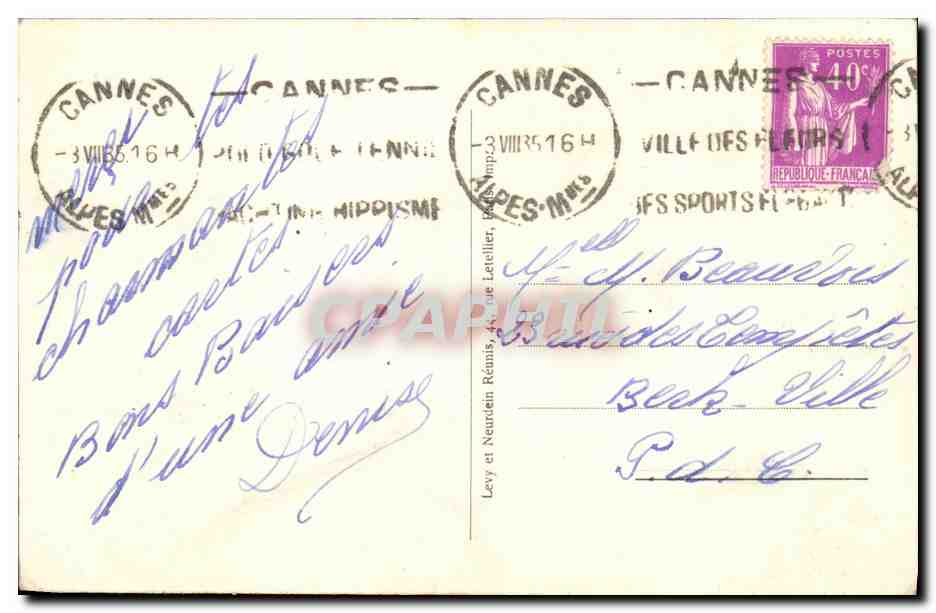 CANNES
-3 VIII 35.16 H
ALPES-Mmes
—CANNES—
HIPPISME
CANNES
-3 VIII 35.16 H
ALPES-Mmes
—CANNES—
VILLE DES FLEURS
DES SPORTS
POSTES
40c
REPUBLIQUE-FRANÇAI
merci
pour tes
charmantes
cartes
Bons Baisers
d'une amie
Denise
Levy et Neurdein Réunis, 44, rue Letellier,
Melle M. Beauvois
des
Berk-Ville
P. d. C.
CPAPHIL